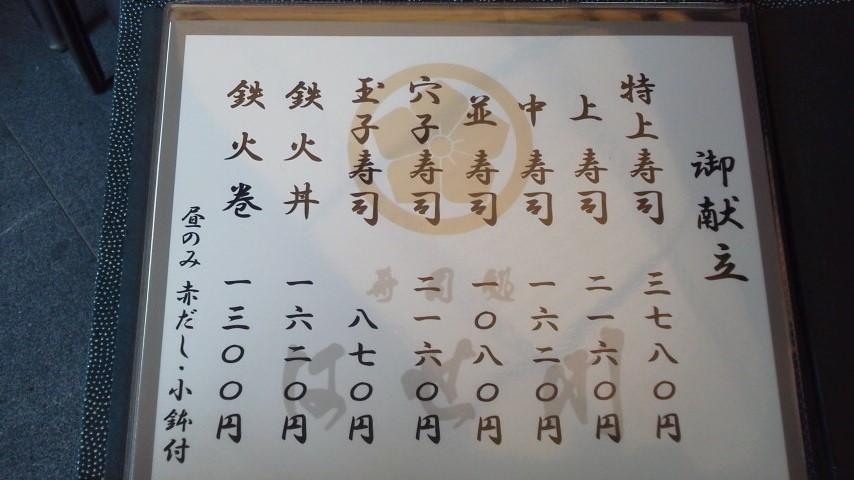 御献立
特上寿司 三七八〇円
上寿司 二一六〇円
中寿司 一六二〇円
並寿司 一〇八〇円
穴子寿司 二一六〇円
玉子寿司 八七〇円
鉄火丼 一六二〇円
鉄火巻 一三〇〇円
昼のみ 赤だし・小鉢付
寿司処
はせ川